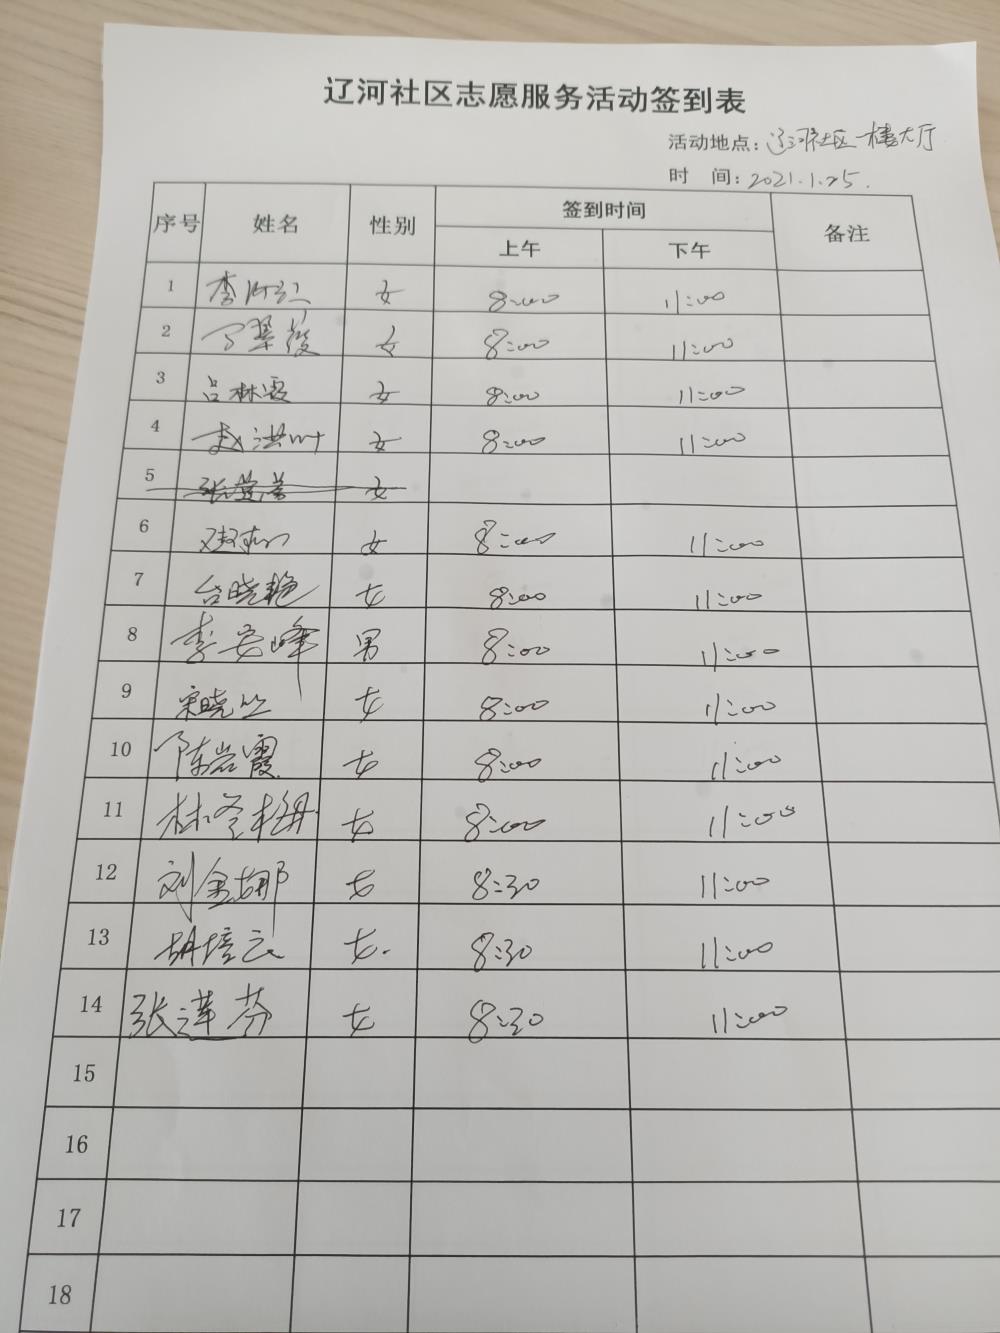 辽河社区志愿服务活动签到表
活动地点：辽河社区一楼大厅
时 间：2021.1.25.
序号 姓名 性别 签到时间 备注
上午 下午
1 李 女 8:00 11:00
2 女 8:00 11:00
3 吕林霞 女 8:00 11:00
4 赵洪叶 女 8:00 11:00
5 张 女
6 女 8:00 11:00
7 台晓艳 女 8:00 11:00
8 李安峰 男 8:00 11:00
9 宋晓 女 8:00 11:00
10 陈岩霞 女 8:00 11:00
11 林冬梅 女 8:00 11:00
12 刘金娜 女 8:30 11:00
13 胡培云 女. 8:30 11:00
14 张莲芬 女 8:30 11:00
15
16
17
18